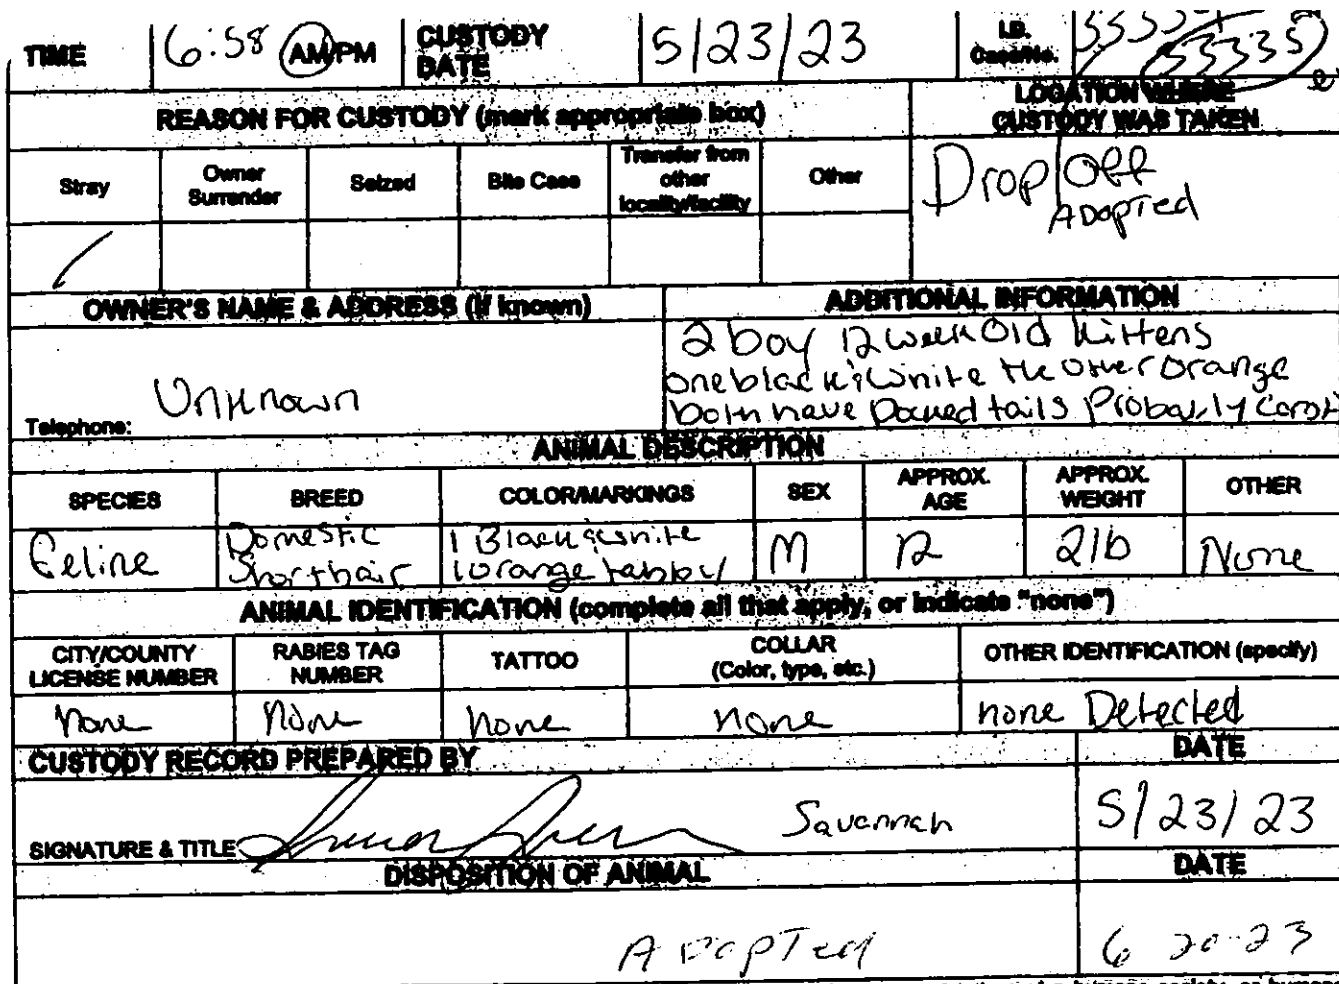 TIME 6:58 AM/PM CUSTODY DATE 5/23/23 I.D. Case/No. 53335
REASON FOR CUSTODY (mark appropriate box) LOCATION WHERE CUSTODY WAS TAKEN
Stray Owner Surrender Seized Bite Case Transfer from other locality/facility Other
Drop Off
Adopted
OWNER'S NAME & ADDRESS (if known) ADDITIONAL INFORMATION
2 boy 12 week Old Kittens
one black & white the other orange
both have Docked tails Probably
Unknown
Telephone:
ANIMAL DESCRIPTION
SPECIES BREED COLOR/MARKINGS SEX APPROX. AGE APPROX. WEIGHT OTHER
Feline Domestic Shorthair 1 Black & white 1 orange tabby M 12 2lb None
ANIMAL IDENTIFICATION (complete all that apply, or indicate "none")
CITY/COUNTY LICENSE NUMBER RABIES TAG NUMBER TATTOO COLLAR (Color, type, etc.) OTHER IDENTIFICATION (specify)
none none none none none Detected
CUSTODY RECORD PREPARED BY DATE
SIGNATURE & TITLE Savannah 5/23/23
DISPOSITION OF ANIMAL DATE
Adopted 6 20-23